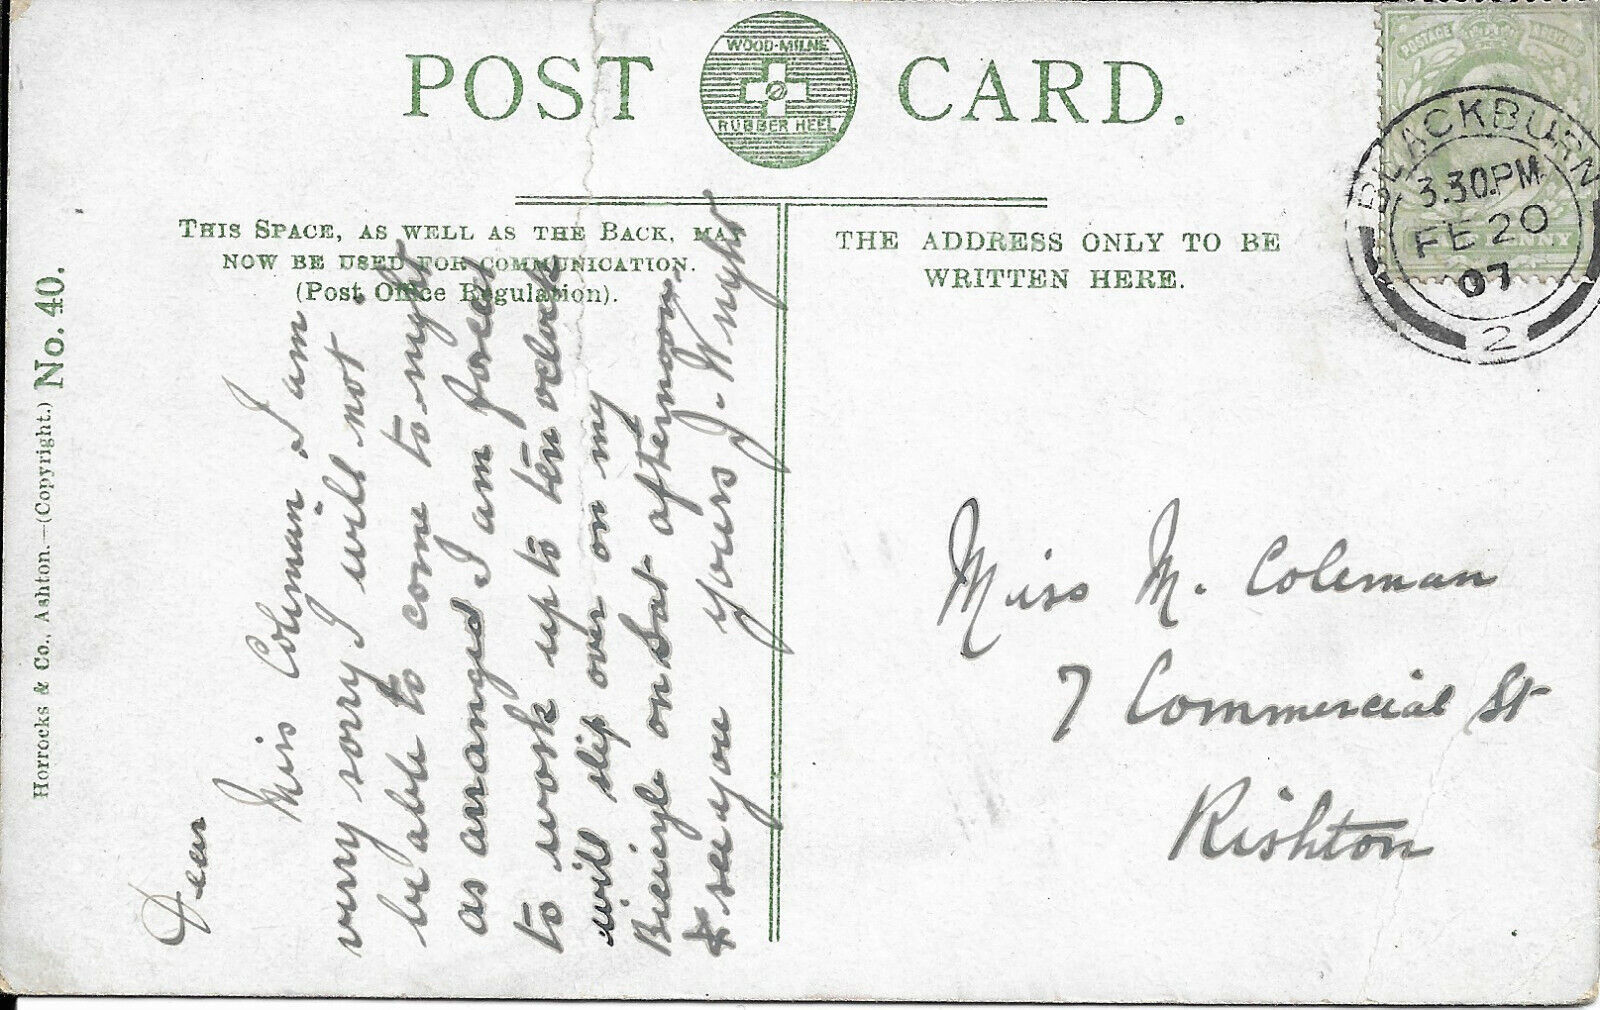 POST CARD.
WOOD-MILNE
RUBBER HEEL
THIS SPACE, AS WELL AS THE BACK, MAY
NOW BE USED FOR COMMUNICATION.
(Post Office Regulation).
THE ADDRESS ONLY TO BE
WRITTEN HERE.
POSTAGE
BLACKBURN
3.30PM
FE 20
07
2
Horrocks & Co., Ashton.—(Copyright.) No. 40.
Dear
Miss Coleman I am
very sorry I will not
be able to come to night
as arranged I am forced
to work up to ten oclock
will slip over on my
Bicicyle on Sat afternoon
& see you yours J. Wright
Miss M. Coleman
7 Commercial St
Rishton